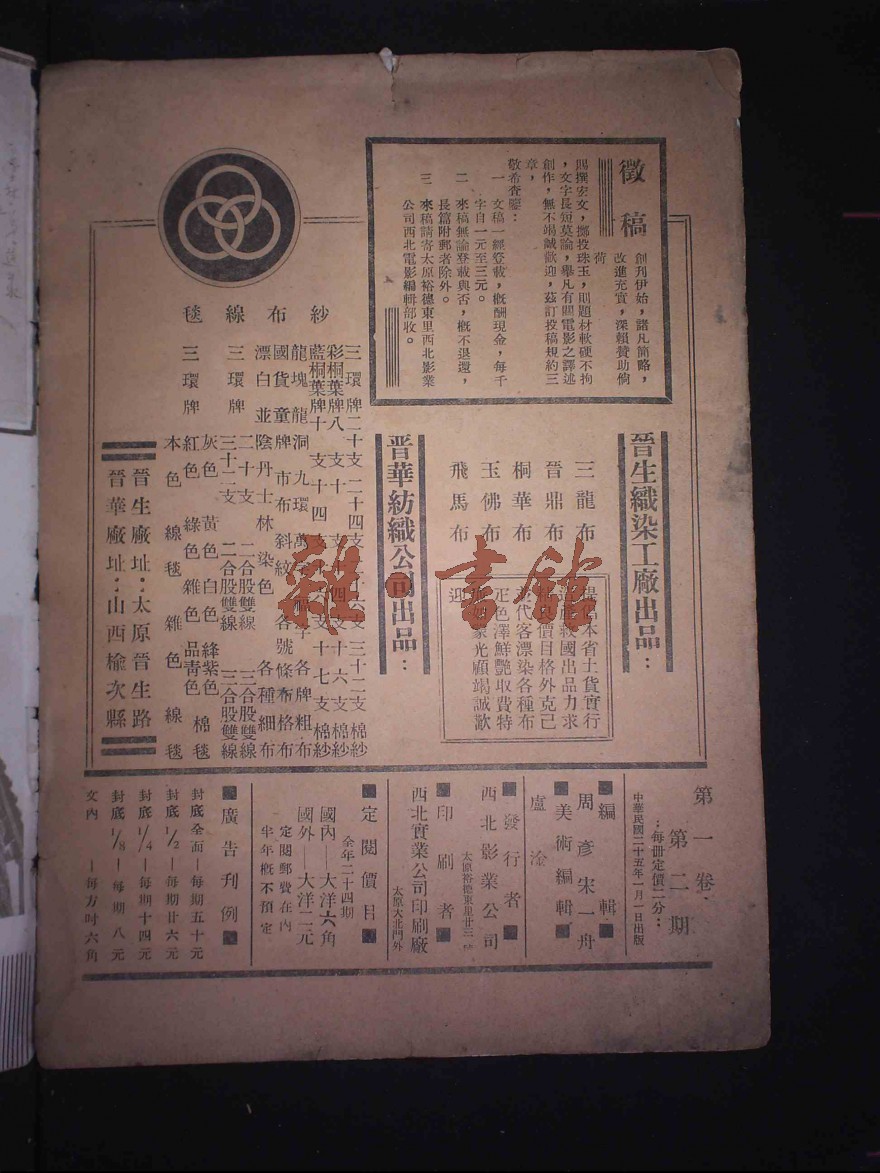 徵稿
創刊伊始，諸凡簡略，
改進充實，深賴贊助倘
荷
賜撰宏文，擲投珠玉，則題材軟硬不拘
，文字長短莫論，舉凡有關電影之譯述
創作，無不竭誠歡迎，茲訂投稿規約三
章，
敬希查鑒：
一 文稿一經登載，概酬現金，每千
字自一元至三元。
二 來稿無論登載與否，概不退還，
長篇附郵者除外。
三 來稿請寄太原裕德東里西北影業
公司西北電影編輯部收。
晉生織染工廠出品：
三龍布
晉鼎布
桐華布
玉佛布
飛馬布
提倡本省土貨實行
服用國出品力求
價目格外克己
代客漂染各種布
正色澤鮮艷取費特
蒙光顧竭誠歡
迎
晋華紡織公司出品：
紗布線毯
三環牌二十支 二十四支 三十二支 棉紗
彩桐葉牌八支 十支 十四支 十六支 棉紗
藍桐葉牌十支 十四支 十七支 棉紗
龍塊 龍洞 九環 各牌粗布
國貨 童牌 市布 斜紋 各號條布格布
漂白並陰丹士林染色 各種細布
三環牌 二十支 二合股雙線 三合股雙線
三十二支 二合股雙線 三合股雙線
灰色 黃色 白色 絳紫色 棉毯
三環牌 紅色 綠色 雜色 品青色
本色 線毯 雜色 線毯
晉生廠址：太原晉生路
晉華廠址：山西榆次縣
第一卷·第二期
：每冊定價二分：
中華民國二十五年一月一日出版
■編輯■
周彥 宋一舟
■美術編輯■
盧淦
■發行者■
西北影業公司
太原裕德東里廿三號
■印刷者■
西北實業公司印刷廠
太原大北門外
■定閱價目■
全年二十四期
國內—大洋六角
國外—大洋二元
定閱郵費在內
半年概不預定
■廣告刊例■
封底全面—每期五十元
封底1/2—每期廿六元
封底1/4—每期十四元
封底1/8—每期八元
文內—每方吋六角
雜·書館